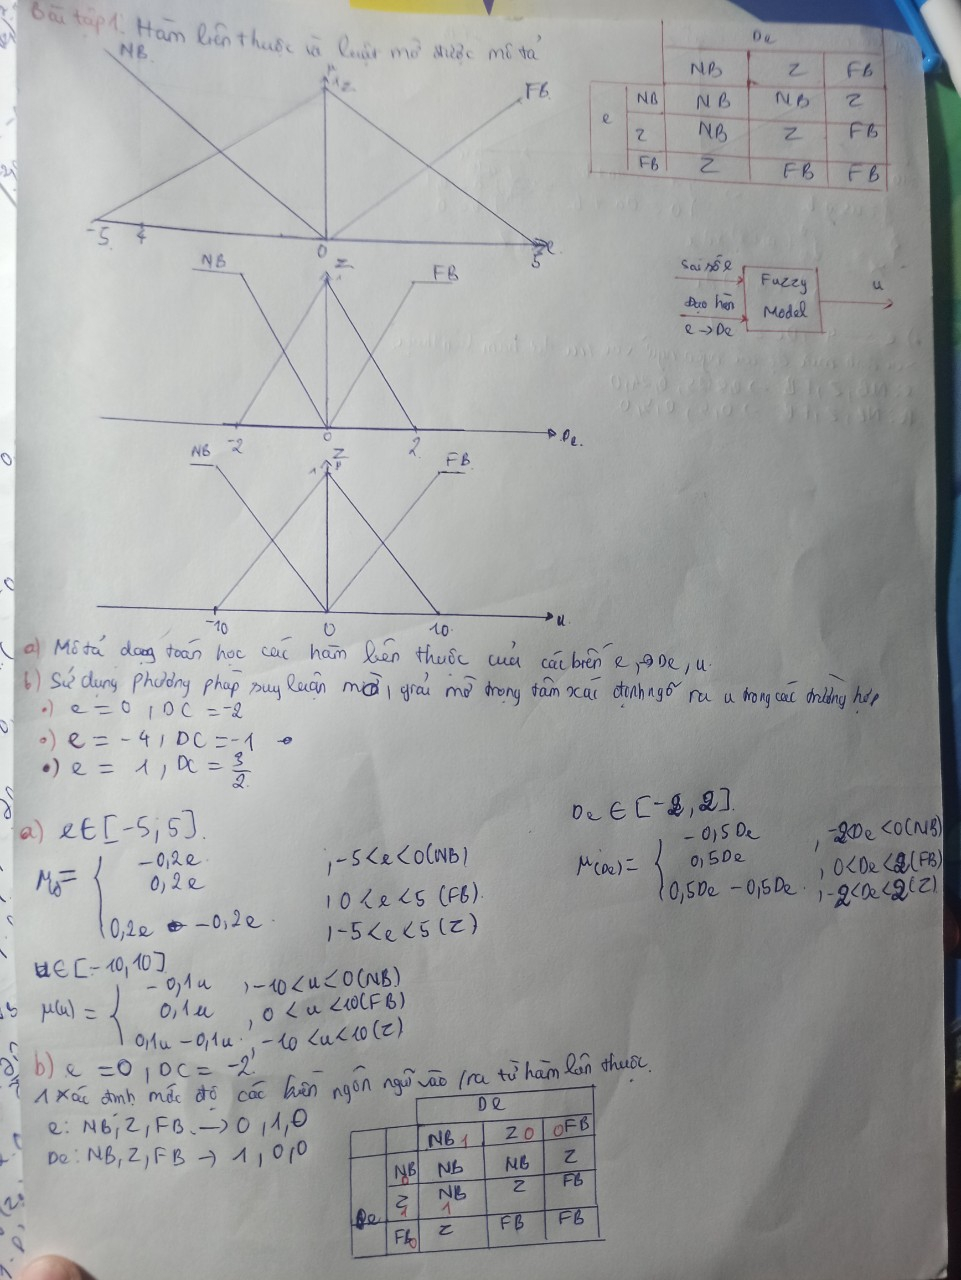 Bài tập 1. Hàm liên thuộc và luật mờ được mô tả
NB
μ
1 Z
FB
-5
4
0
5
e
De
NB Z FB
e
NB NB NB Z
Z NB Z FB
FB Z FB FB
NB
Z
1
FB
-2
0
2
De
Sai số e
Đạo hàm
e → De
Fuzzy
Model
u
NB
Z
1 μ
FB
-10
0
10
u
a) Mô tả dạng toán học các hàm liên thuộc của các biến e, De, u.
b) Sử dụng phương pháp suy luận mờ, giải mờ trọng tâm xác định ngõ ra u trong các trường hợp
•) e = 0, DC = -2
•) e = -4, DC = -1
•) e = 1, DC = 3/2
a) e ∈ [-5; 5].
-0,2e ; -5 < e < 0 (NB)
0,2e ; 0 < e < 5 (FB).
0,2e - 0,2e ; -5 < e < 5 (Z)
De ∈ [-2, 2].
μ(De) =
-0,5De , -2 De < 0 (NB)
0,5De , 0 < De < 2 (FB)
0,5De - 0,5De , -2 < De < 2 (Z)
u ∈ [-10, 10]
μ(u) =
-0,1u , -10 < u < 0 (NB)
0,1u , 0 < u < 10 (FB)
0,1u - 0,1u , -10 < u < 10 (Z)
b) e = 0, DC = -2
1 Xác định mức độ các biến ngôn ngữ vào / ra từ hàm liên thuộc.
e: NB, Z, FB → 0, 1, 0
De: NB, Z, FB → 1, 0, 0
De
NB 1 Z 0 0 FB
NB 0 NB NB Z
De
Z 1 NB 1 Z FB
FB 0 Z FB FB